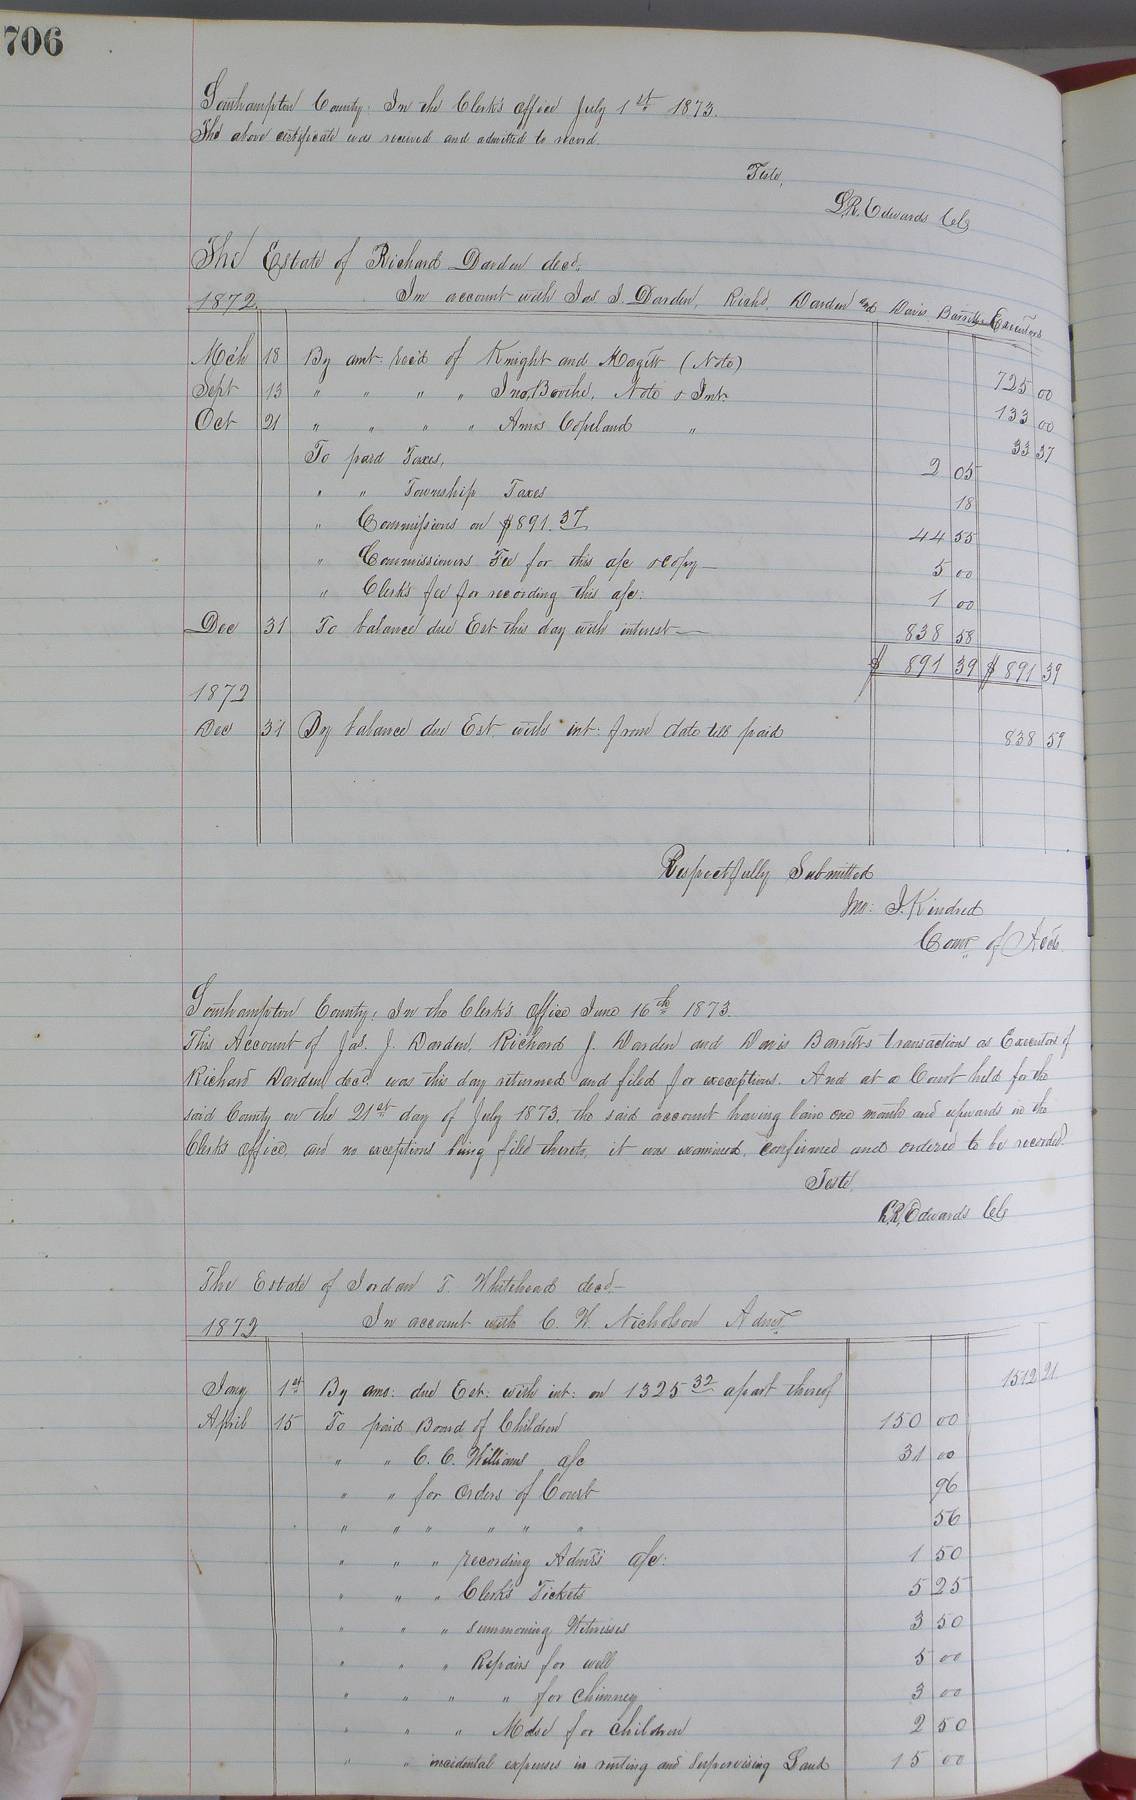 706
Southampton County: In the Clerk's Office July 1st 1873.
The above certificate was received and admitted to record.
Teste,
L.R. Edwards CC
The Estate of Richard Darden decd.
In account with Jas. J. Darden, Richd. Darden and Davis Barrett Executors
1872
Mch 18 By amt: rec'd of Knight and Magett (Note) 725 00
Sept 13 " " " " Jno. Note & Int. 133 00
Oct 21 " " " " Amos Copeland " 33 37
To paid Taxes, 2 05
" " Township Taxes 18
" Commissions on $891.37 44 55
" Commissioners Fee for this a/c & copy 5 00
" Clerk's fee for recording this a/c: 1 00
Dec 31 To balance due Est this day with interest 838 58
$ 891 39 $ 891 39
1872
Dec 31 By balance due Est. with int: from date till paid 838 59
Respectfully Submitted
Jno: J. Kindred
Comr. of Accts.
Southampton County; In the Clerk's Office June 16th 1873.
This Account of Jas. J. Darden, Richard J. Darden and Davis Barretts transactions as Executors of
Richard Darden decd. was this day returned and filed for exceptions. And at a Court held for the
said County on the 21st day of July 1873, the said account having lain one month and upwards in the
Clerk's Office, and no exceptions being filed thereto, it was examined, confirmed and ordered to be recorded.
Teste,
L.R. Edwards CC
The Estate of Jordan T. Whitehead decd.
In account with C. W. Nicholson Admr.
1872
Jany 1st By amo: due Est: with int: on 1325 32 apart thereof 1512 21
April 15 To paid Board of Children 150 00
" " C. C. Williams a/c 31 00
" " for Orders of Court 96
" " " " " " 56
" " " recording Admr's a/c: 1 50
" " " Clerk's Tickets 5 25
" " " summoning Witnesses 3 50
" " " Repairs for well 5 00
" " " " for chimney 3 00
" " " Mdse for Children 2 50
" " incidental expenses in renting and supervising Land 15 00